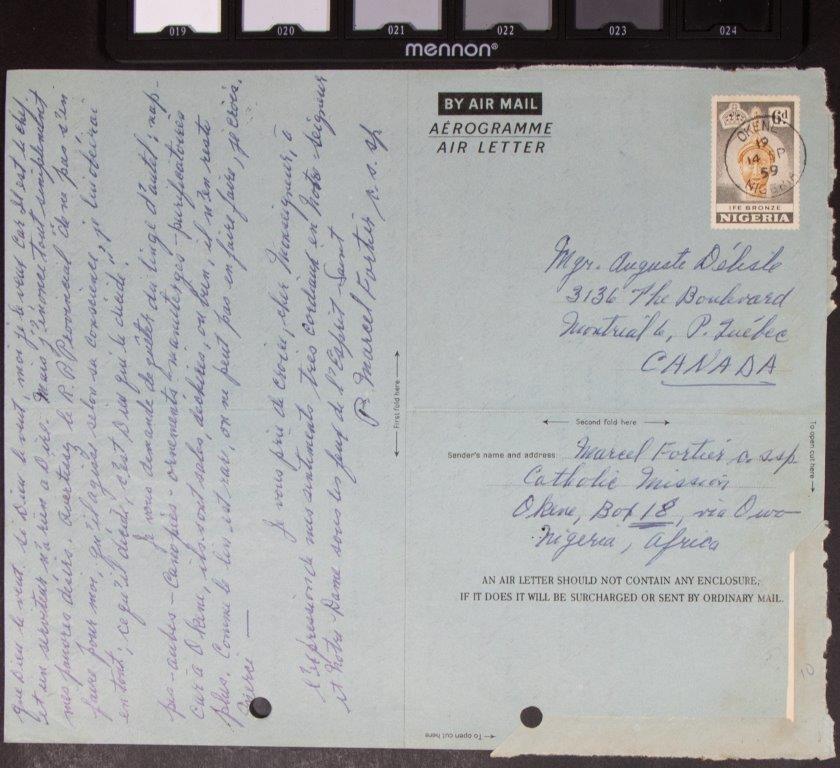 019 020 021 022 023 024
mennon®
BY AIR MAIL
AÉROGRAMME
AIR LETTER
6d
OKENE
19
14
59
NIGERIA
IFE BRONZE
NIGERIA
Mgr. Auguste Délisle
3136 The Boulevard
Montréal 6, P. Québec
CANADA
First fold here
Second fold here
To open cut here
Sender's name and address: Marcel Fortier c.s.sp.
Catholic Mission
Okene, Box 18, via Owo
Nigeria, Africa
AN AIR LETTER SHOULD NOT CONTAIN ANY ENCLOSURE;
IF IT DOES IT WILL BE SURCHARGED OR SENT BY ORDINARY MAIL.
To open cut here
que Dieu le veut. Si Dieu le veut, moi je le veux car Il est le chef
et un serviteur n'a rien à dire. Mais j'énonce tout simplement
mes pauvres désirs. Avertissez le R. P. Provincial de ne pas s'en
faire pour moi, qu'il agisse selon sa conscience, je lui obéirai
en tout; ce qu'il décide, c'est Dieu qui le décide.
Je vous demande de quêter du linge d'autel; nap-
pes - aubes - canopées - ornements - manuterges - purificatoires
car à Okene, ils sont sales, déchirés, ou bien, il n'en reste
plus. Comme le lin est rare, on ne peut pas en faire faire, je crois.
Merci —
Je vous prie de croire, cher Monseigneur, à
l'expression de mes sentiments très cordiaux en Notre-Seigneur
et Notre-Dame sous les feux de l'Esprit Saint
P. Marcel Fortier c.s.sp.